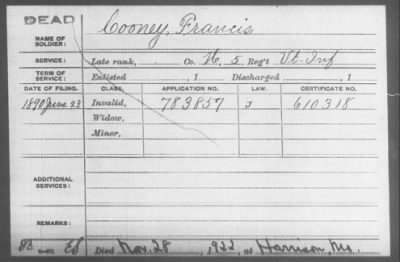 DEAD
NAME OF SOLDIER: Cooney, Francis
SERVICE: Late rank, Co. H, 5 Reg't Vt. Inf
TERM OF SERVICE: Enlisted , 1 Discharged , 1
DATE OF FILING. CLASS. APPLICATION NO. LAW. CERTIFICATE NO.
1890 June 23 Invalid, 783857 J 610318
Widow,
Minor,
ADDITIONAL SERVICES:
REMARKS:
Died Nov. 28 , 1922, at Harrison,